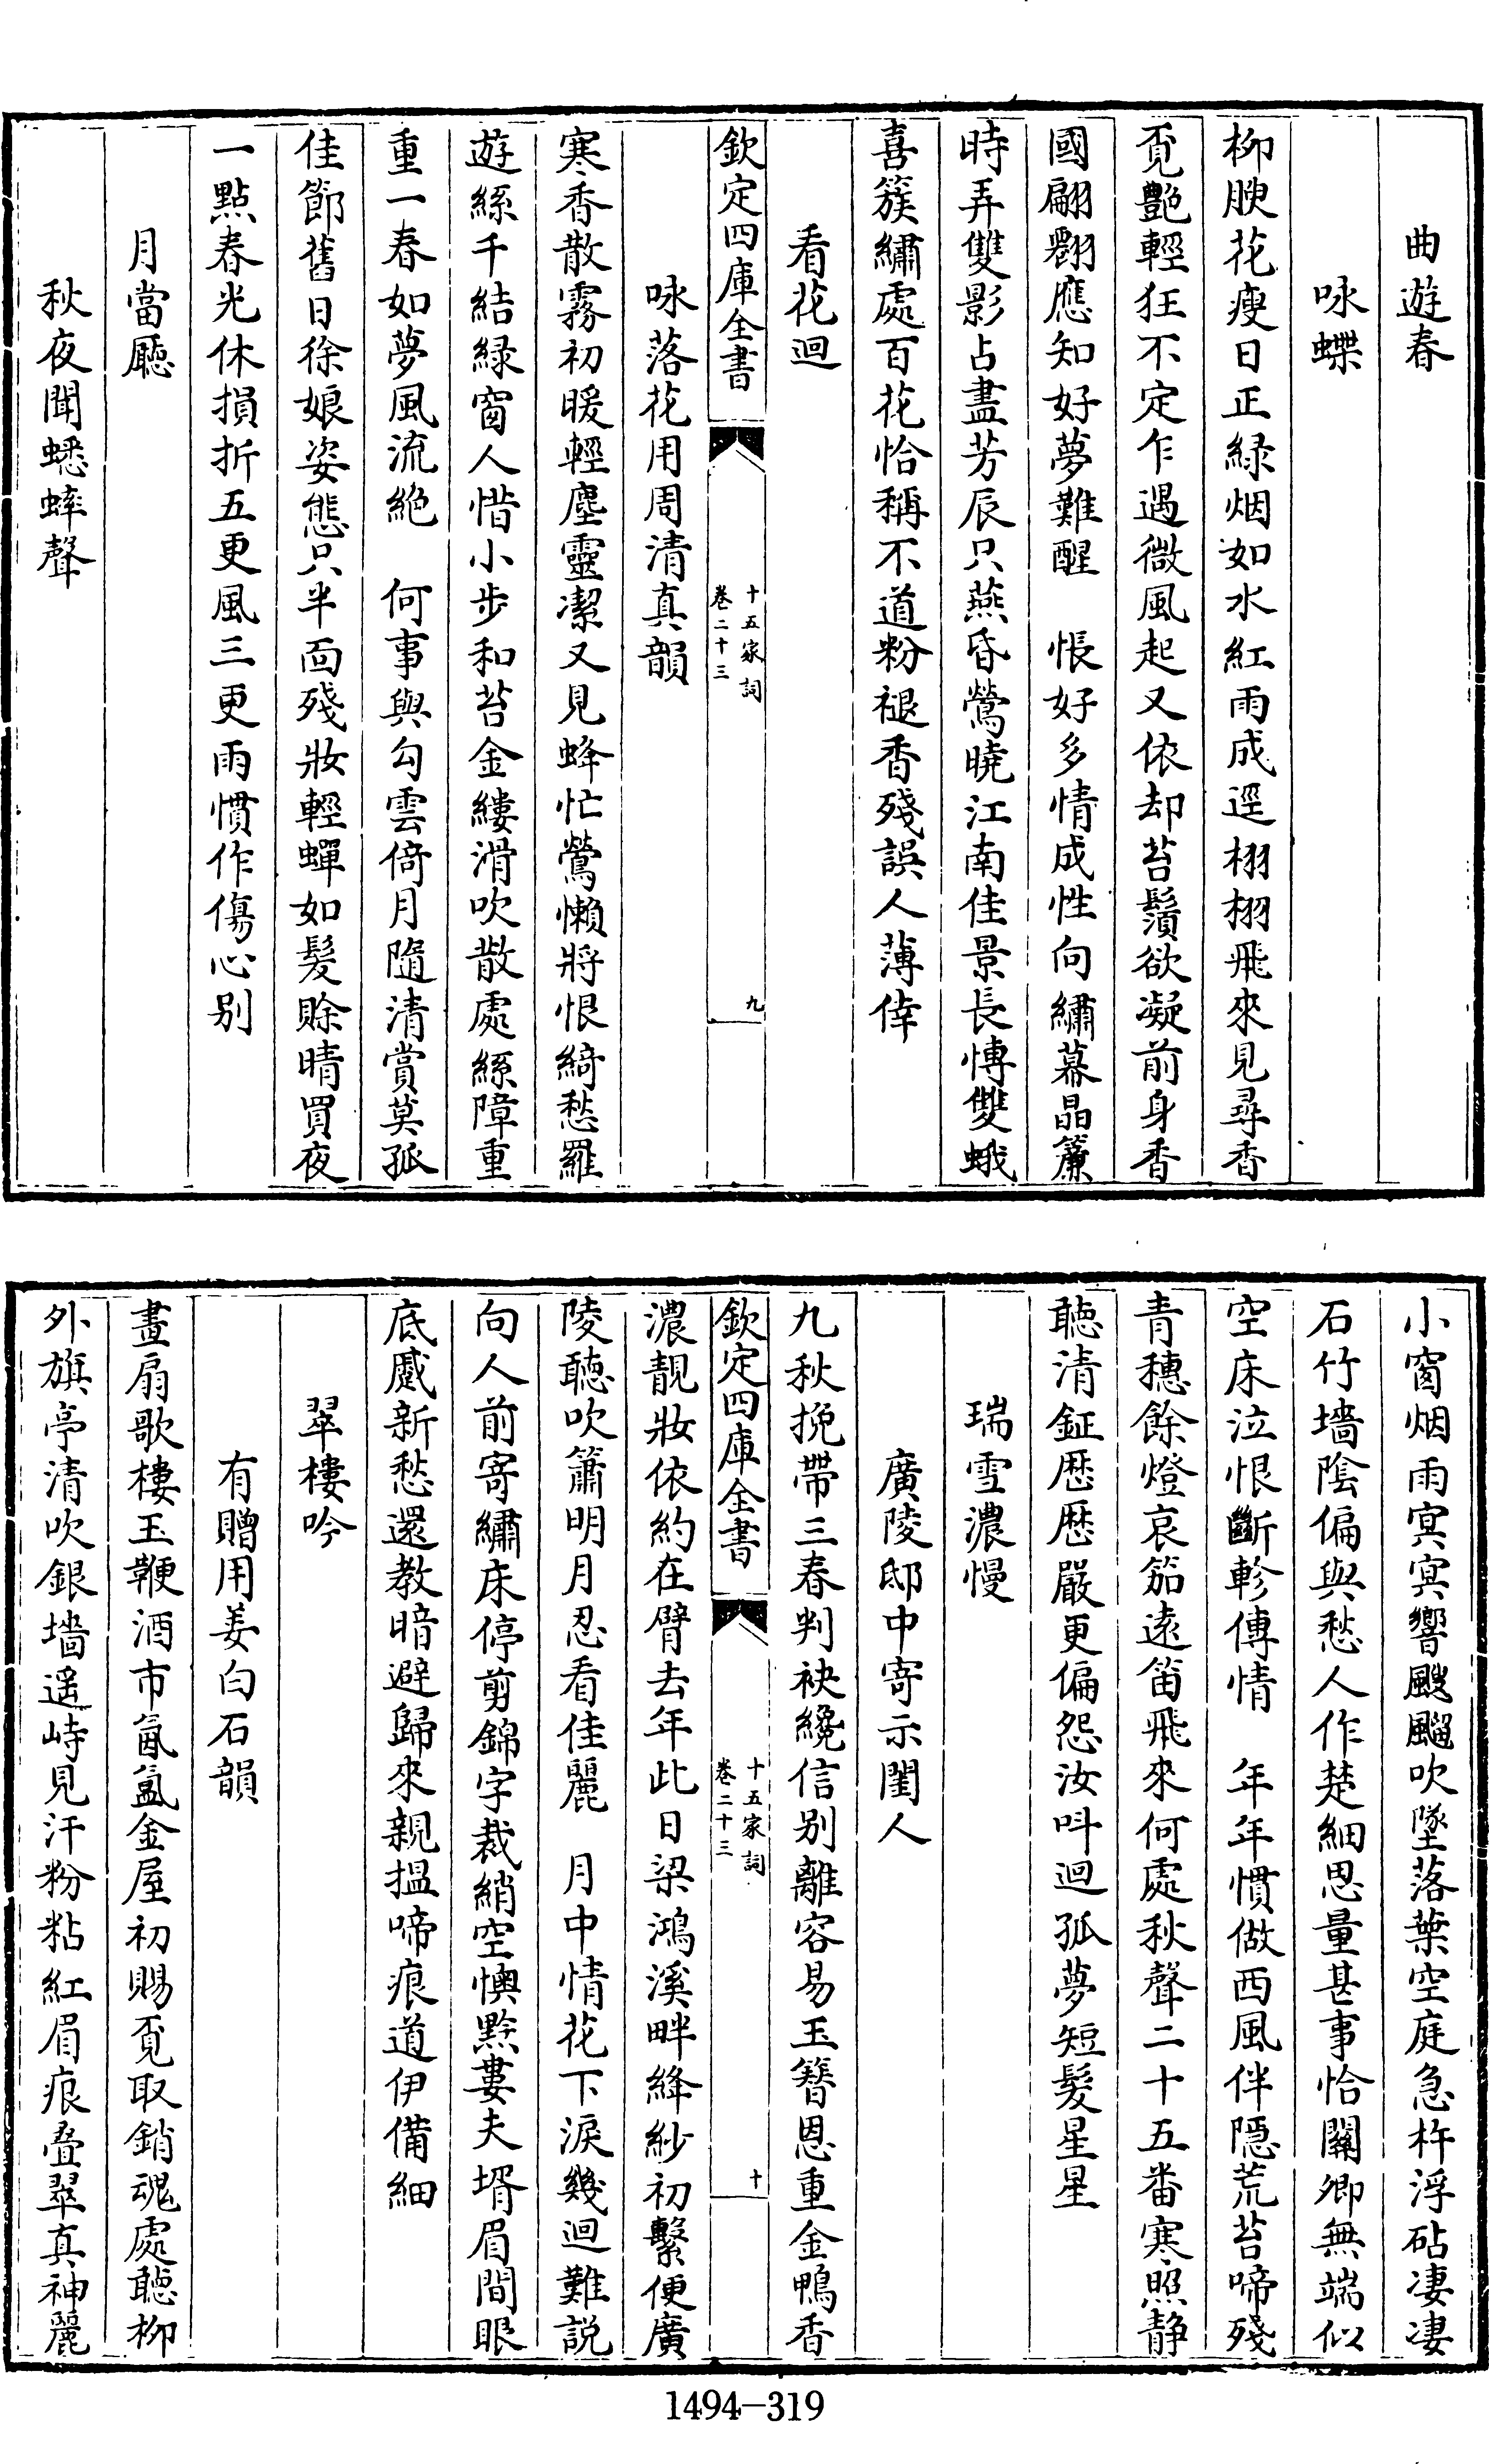 曲遊春
咏蝶
柳腴花瘦日正緑烟如水紅雨成逕栩栩飛來見尋香
覓艷輕狂不定乍遇微風起又依却苔鬚欲凝前身香
國翩翾應知好夢難醒　悵好多情成性向繡幕晶簾
時弄雙影占盡芳辰只燕昏鶯曉江南佳景長慱雙蛾
喜簇繡處百花恰稱不道粉褪香殘誤人薄倖
看花迴
欽定四庫全書
十五家詞
卷二十三
九
咏落花用周清真韻
寒香散霧初暖輕塵靈潔又見蜂忙鶯懶將恨綺愁羅
遊絲千結緑窗人惜小步和苔金縷滑吹散處絲障重
重一春如夢風流絶　何事與勾雲倚月隨清賞莫孤
佳節舊日徐娘姿態只半面殘妝輕蟬如髮賒晴買夜
一點春光休損折五更風三更雨慣作傷心别
月當廳
秋夜聞蟋蟀聲
小窗烟雨冥冥響颼飀吹墜落葉空庭急杵浮砧凄凄
石竹墻陰偏與愁人作楚細思量甚事恰關卿無端似
空床泣恨斷軫傳情　年年慣做西風伴隱荒苔啼殘
青穗餘燈哀笳遠笛飛來何處秋聲二十五番寒照静
聽清鉦歷歷嚴更偏怨汝呌迴孤夢短髮星星
瑞雪濃慢
廣陵邸中寄示閨人
九秋挽帶三春判袂纔信别離容易玉簪恩重金鴨香
欽定四庫全書
十五家詞
卷二十三
十
濃靚妝依約在臂去年此日梁鴻溪畔絳紗初繫便廣
陵聽吹簫明月忍看佳麗　月中情花下淚幾迴難説
向人前寄繡床停剪錦字裁綃空懊黔婁夫壻眉間眼
底蹙新愁還教暗避歸來親揾啼痕道伊備細
翠樓吟
有贈用姜白石韻
畫扇歌樓玉鞭酒市氤氲金屋初賜覓取銷魂處聽柳
外旗亭清吹銀墻遥峙見汗粉粘紅眉痕叠翠真神麗
1494-319